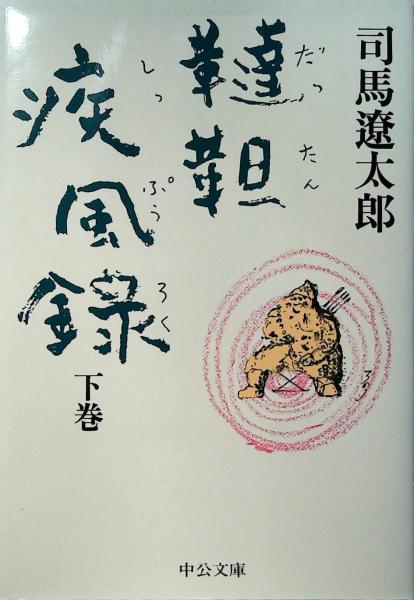 司馬遼太郎
韃靼
だったん
疾風録
しっぷうろく
下巻
中公文庫